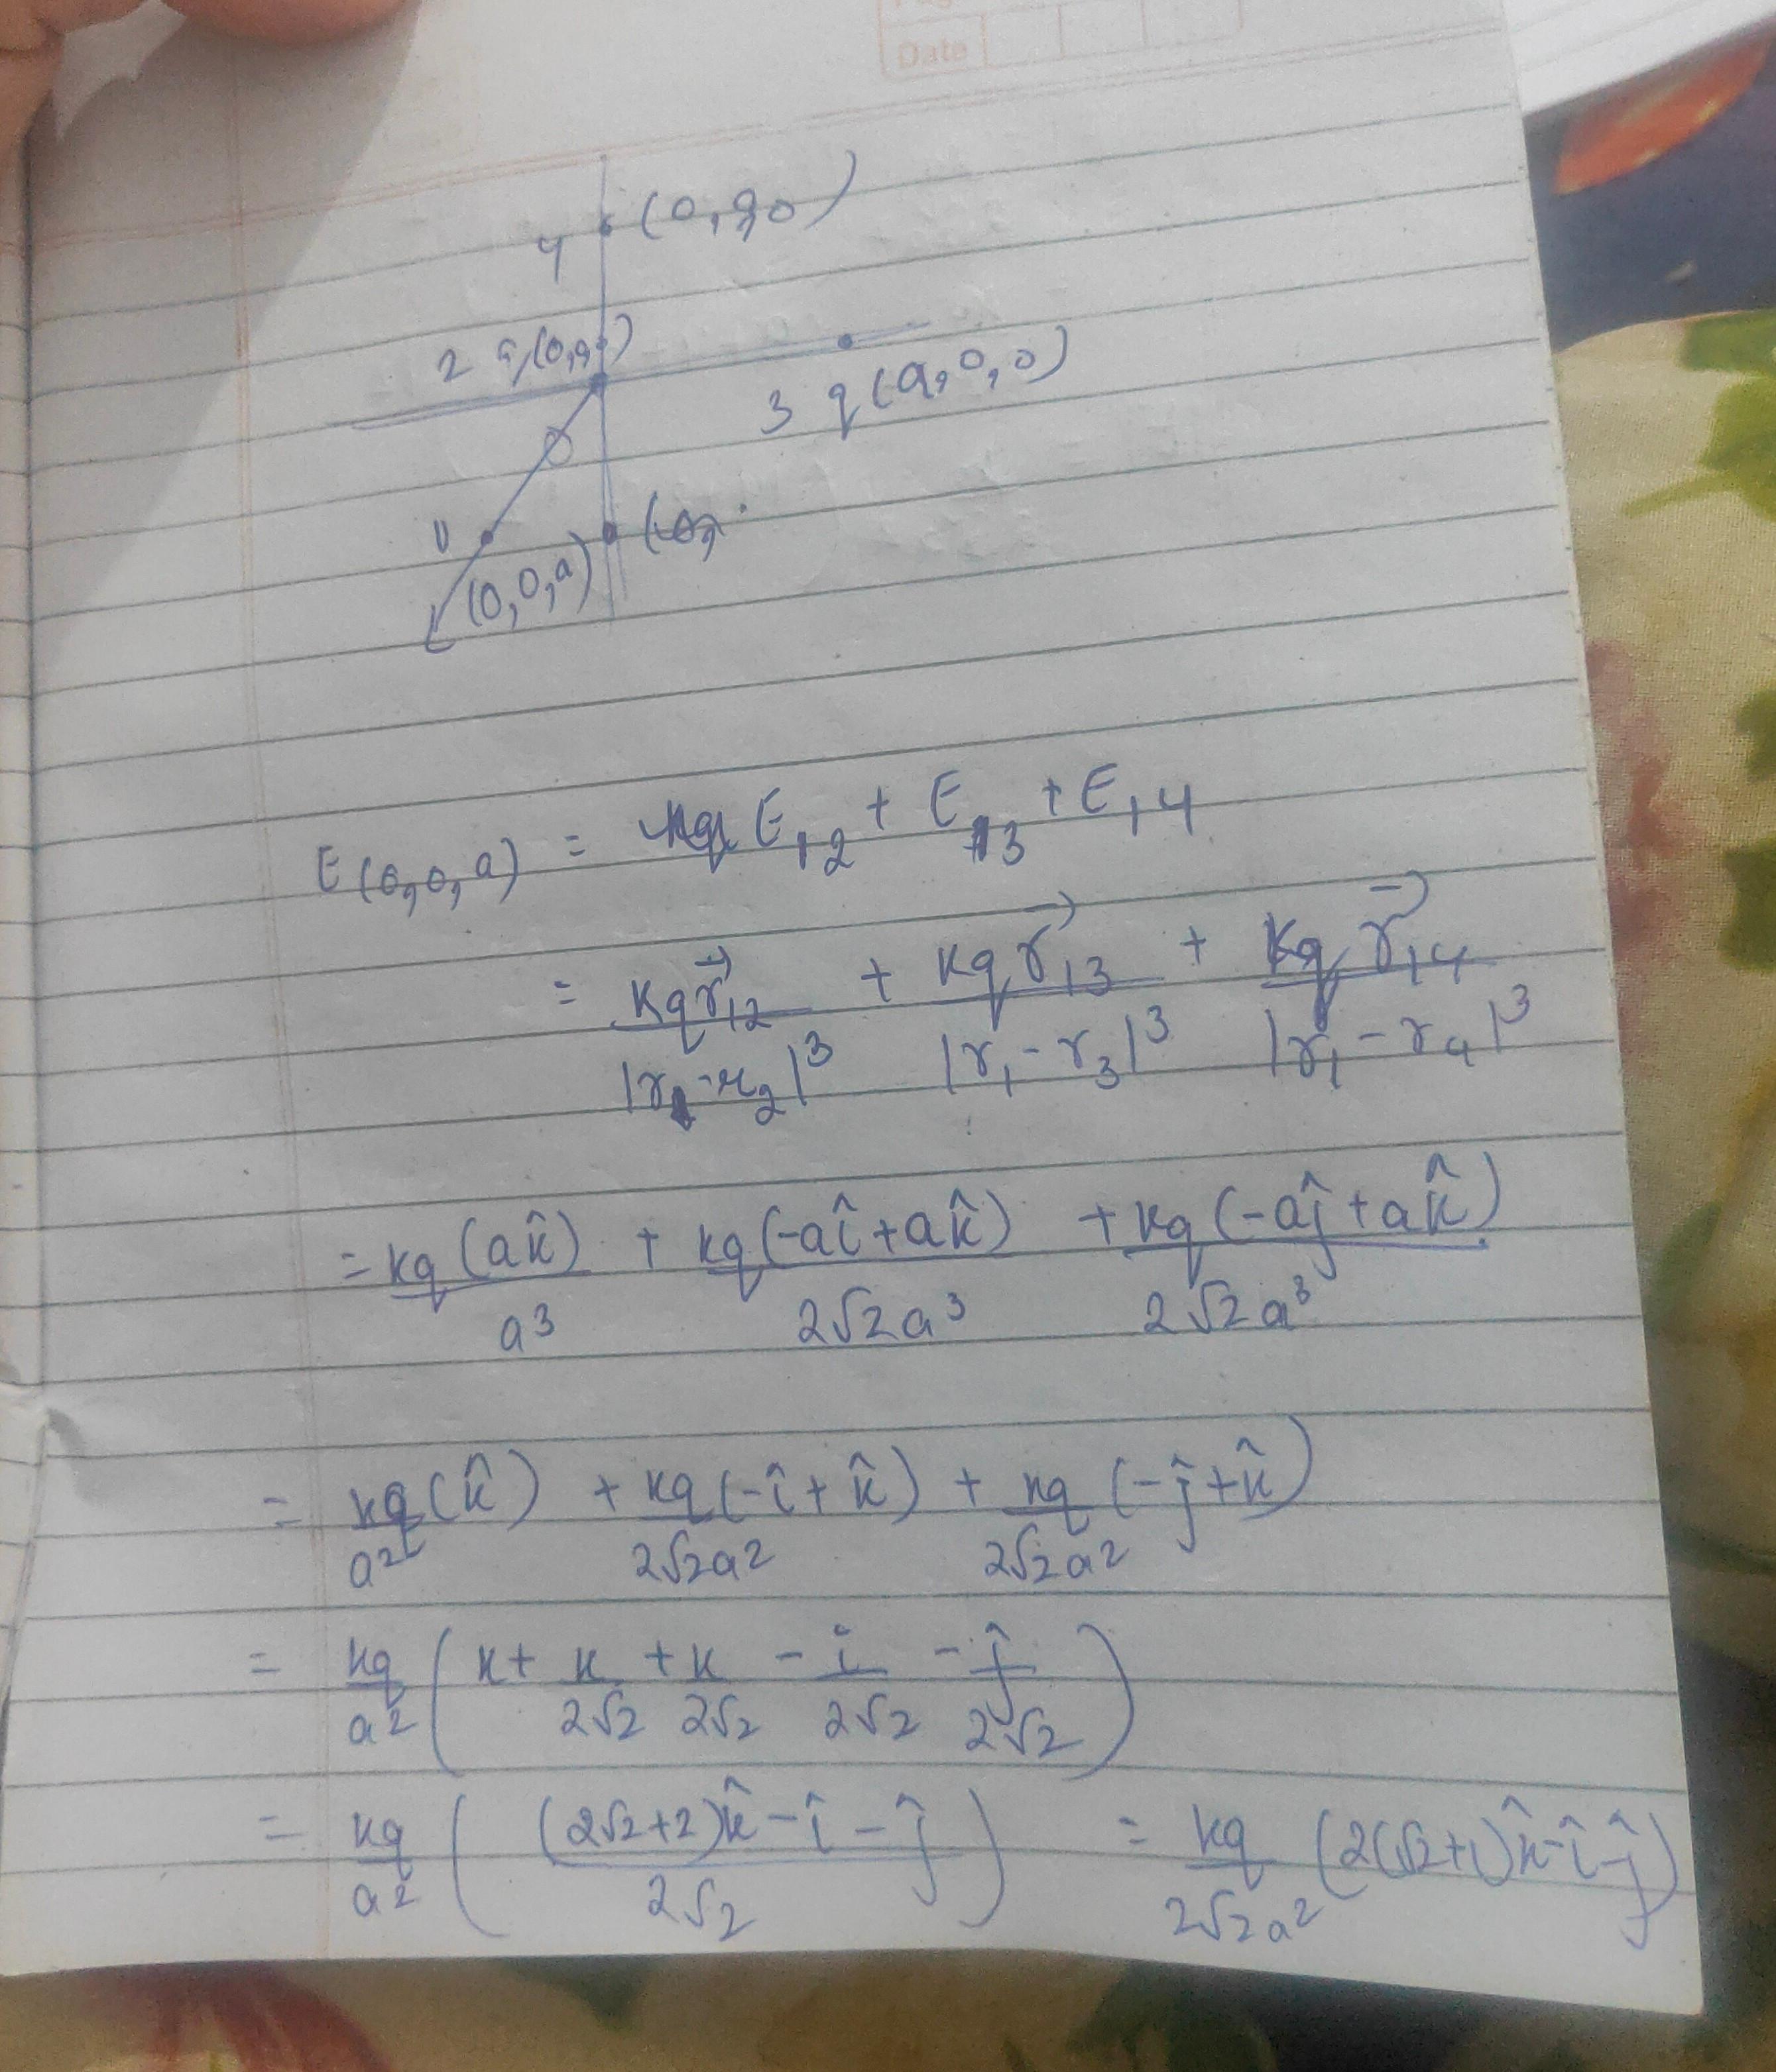 Date
4 (0, a, 0)
2 q(0,
3 q(a, 0, 0)
(0,
(0, 0, a)
E(0, 0, a) = E₁₂ + E₁₃ + E₁₄
= Kq r⃗₁₂ / |r₁ - r₂|³ + Kq r⃗₁₃ / |r₁ - r₃|³ + Kq r⃗₁₄ / |r₁ - r₄|³
= kq (ak̂) / a³ + kq (-aî + ak̂) / 2√2a³ + kq (-aĵ + ak̂) / 2√2a³
= kq/a² (k̂) + kq/2√2a² (-î + k̂) + kq/2√2a² (-ĵ + k̂)
= kq/a² ( k + k/2√2 + k/2√2 - i/2√2 - ĵ/2√2 )
= kq/a² ( ((2√2+2)k̂ - î - ĵ) / 2√2 ) = kq/2√2a² (2(√2+1)k̂ - î - ĵ)